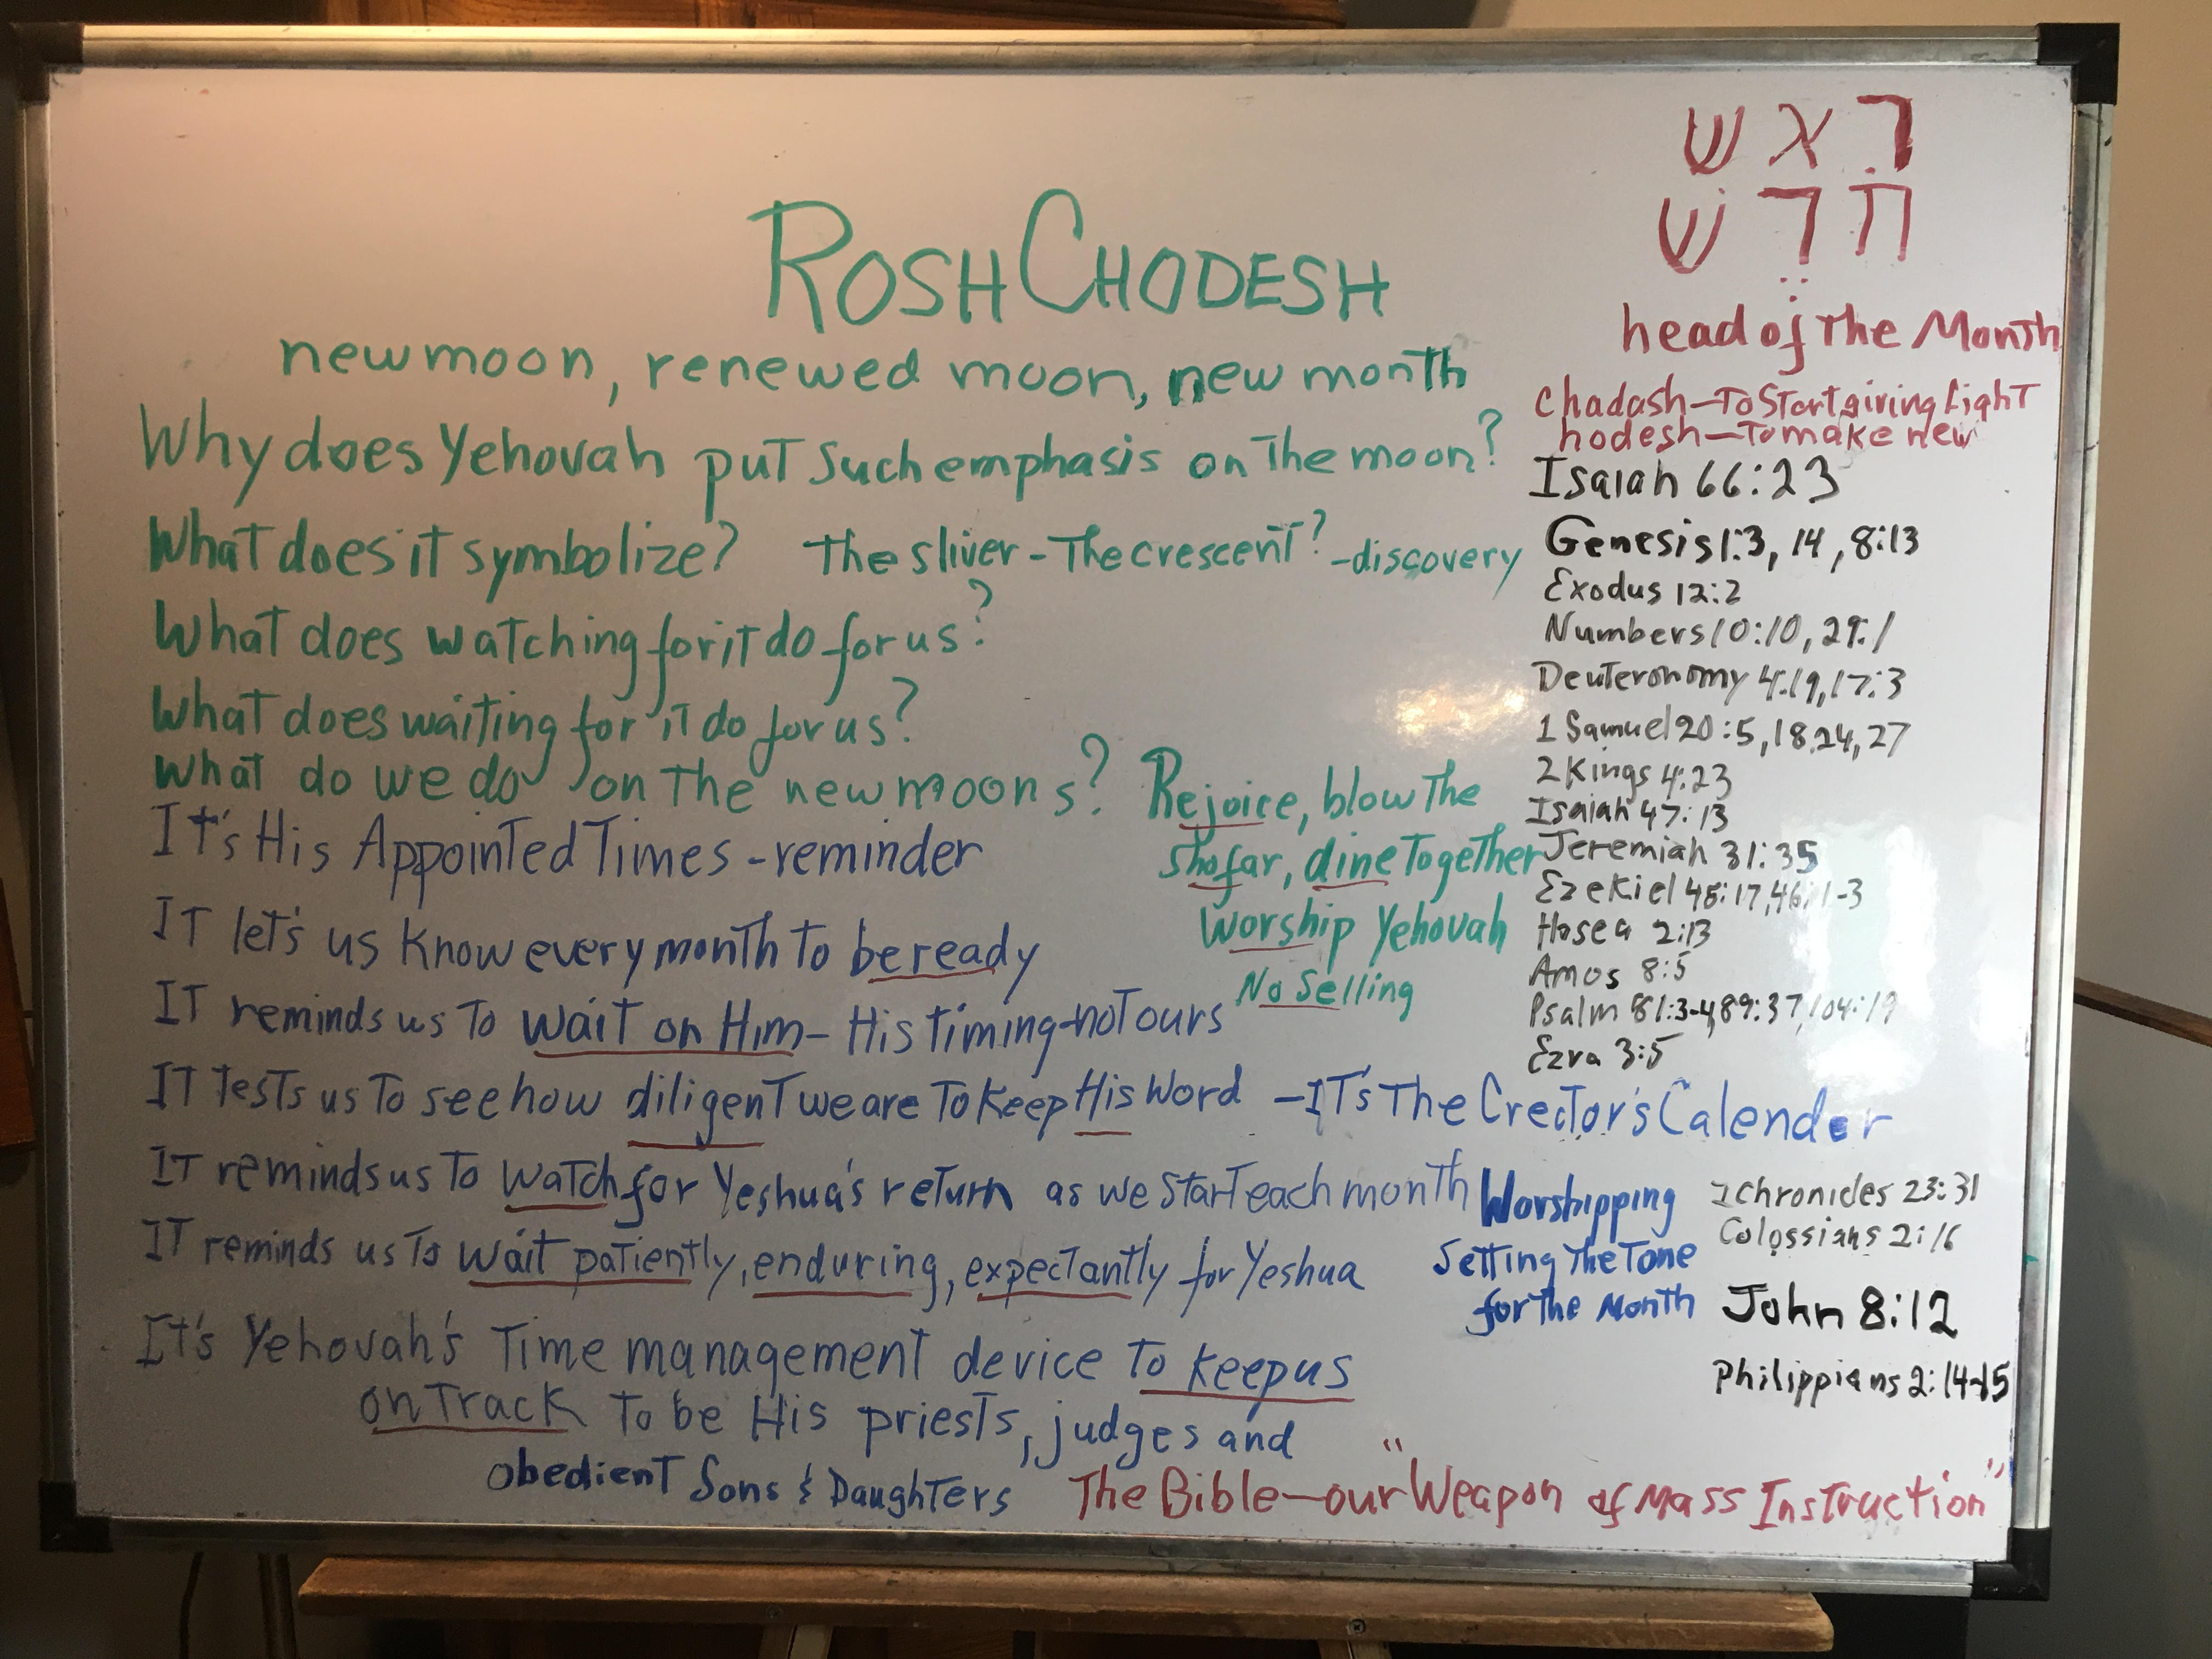 ROSH CHODESH
new moon, renewed moon, new month
Why does Yehovah put such emphasis on the moon?
What does it symbolize? the sliver - The crescent? - discovery
What does watching for it do for us?
What does waiting for it do for us?
What do we do on the new moons? Rejoice, blow the
shofar, dine together
Worship Yehovah
No Selling
It's His Appointed Times - reminder
IT let's us know every month to be ready
IT reminds us to wait on Him - His timing - not ours
IT tests us to see how diligent we are to keep His Word - IT's The Creator's Calender
IT reminds us to watch for Yeshua's return as we start each month Worshipping
Setting The Tone
for The Month
IT reminds us to wait patiently, enduring, expectantly for Yeshua
It's Yehovah's Time management device to keep us
on track to be His priests, judges and
obedient Sons & Daughters
רִאש
חדֶשׁ
head of the Month
Chadash - To Start giving Light
hodesh - To make new
Isaiah 66:23
Genesis 1:3, 14, 8:13
Exodus 12:2
Numbers 10:10, 29:1
Deuteronomy 4:19, 17:3
1 Samuel 20:5, 18, 24, 27
2 Kings 4:23
Isaiah 47:13
Jeremiah 31:35
Ezekiel 45:17, 46:1-3
Hosea 2:13
Amos 8:5
Psalm 81:3-4, 89:37, 104:19
Ezra 3:5
1 Chronicles 23:31
Colossians 2:16
John 8:12
Philippians 2:14-15
The Bible - our "Weapon of Mass Instruction"